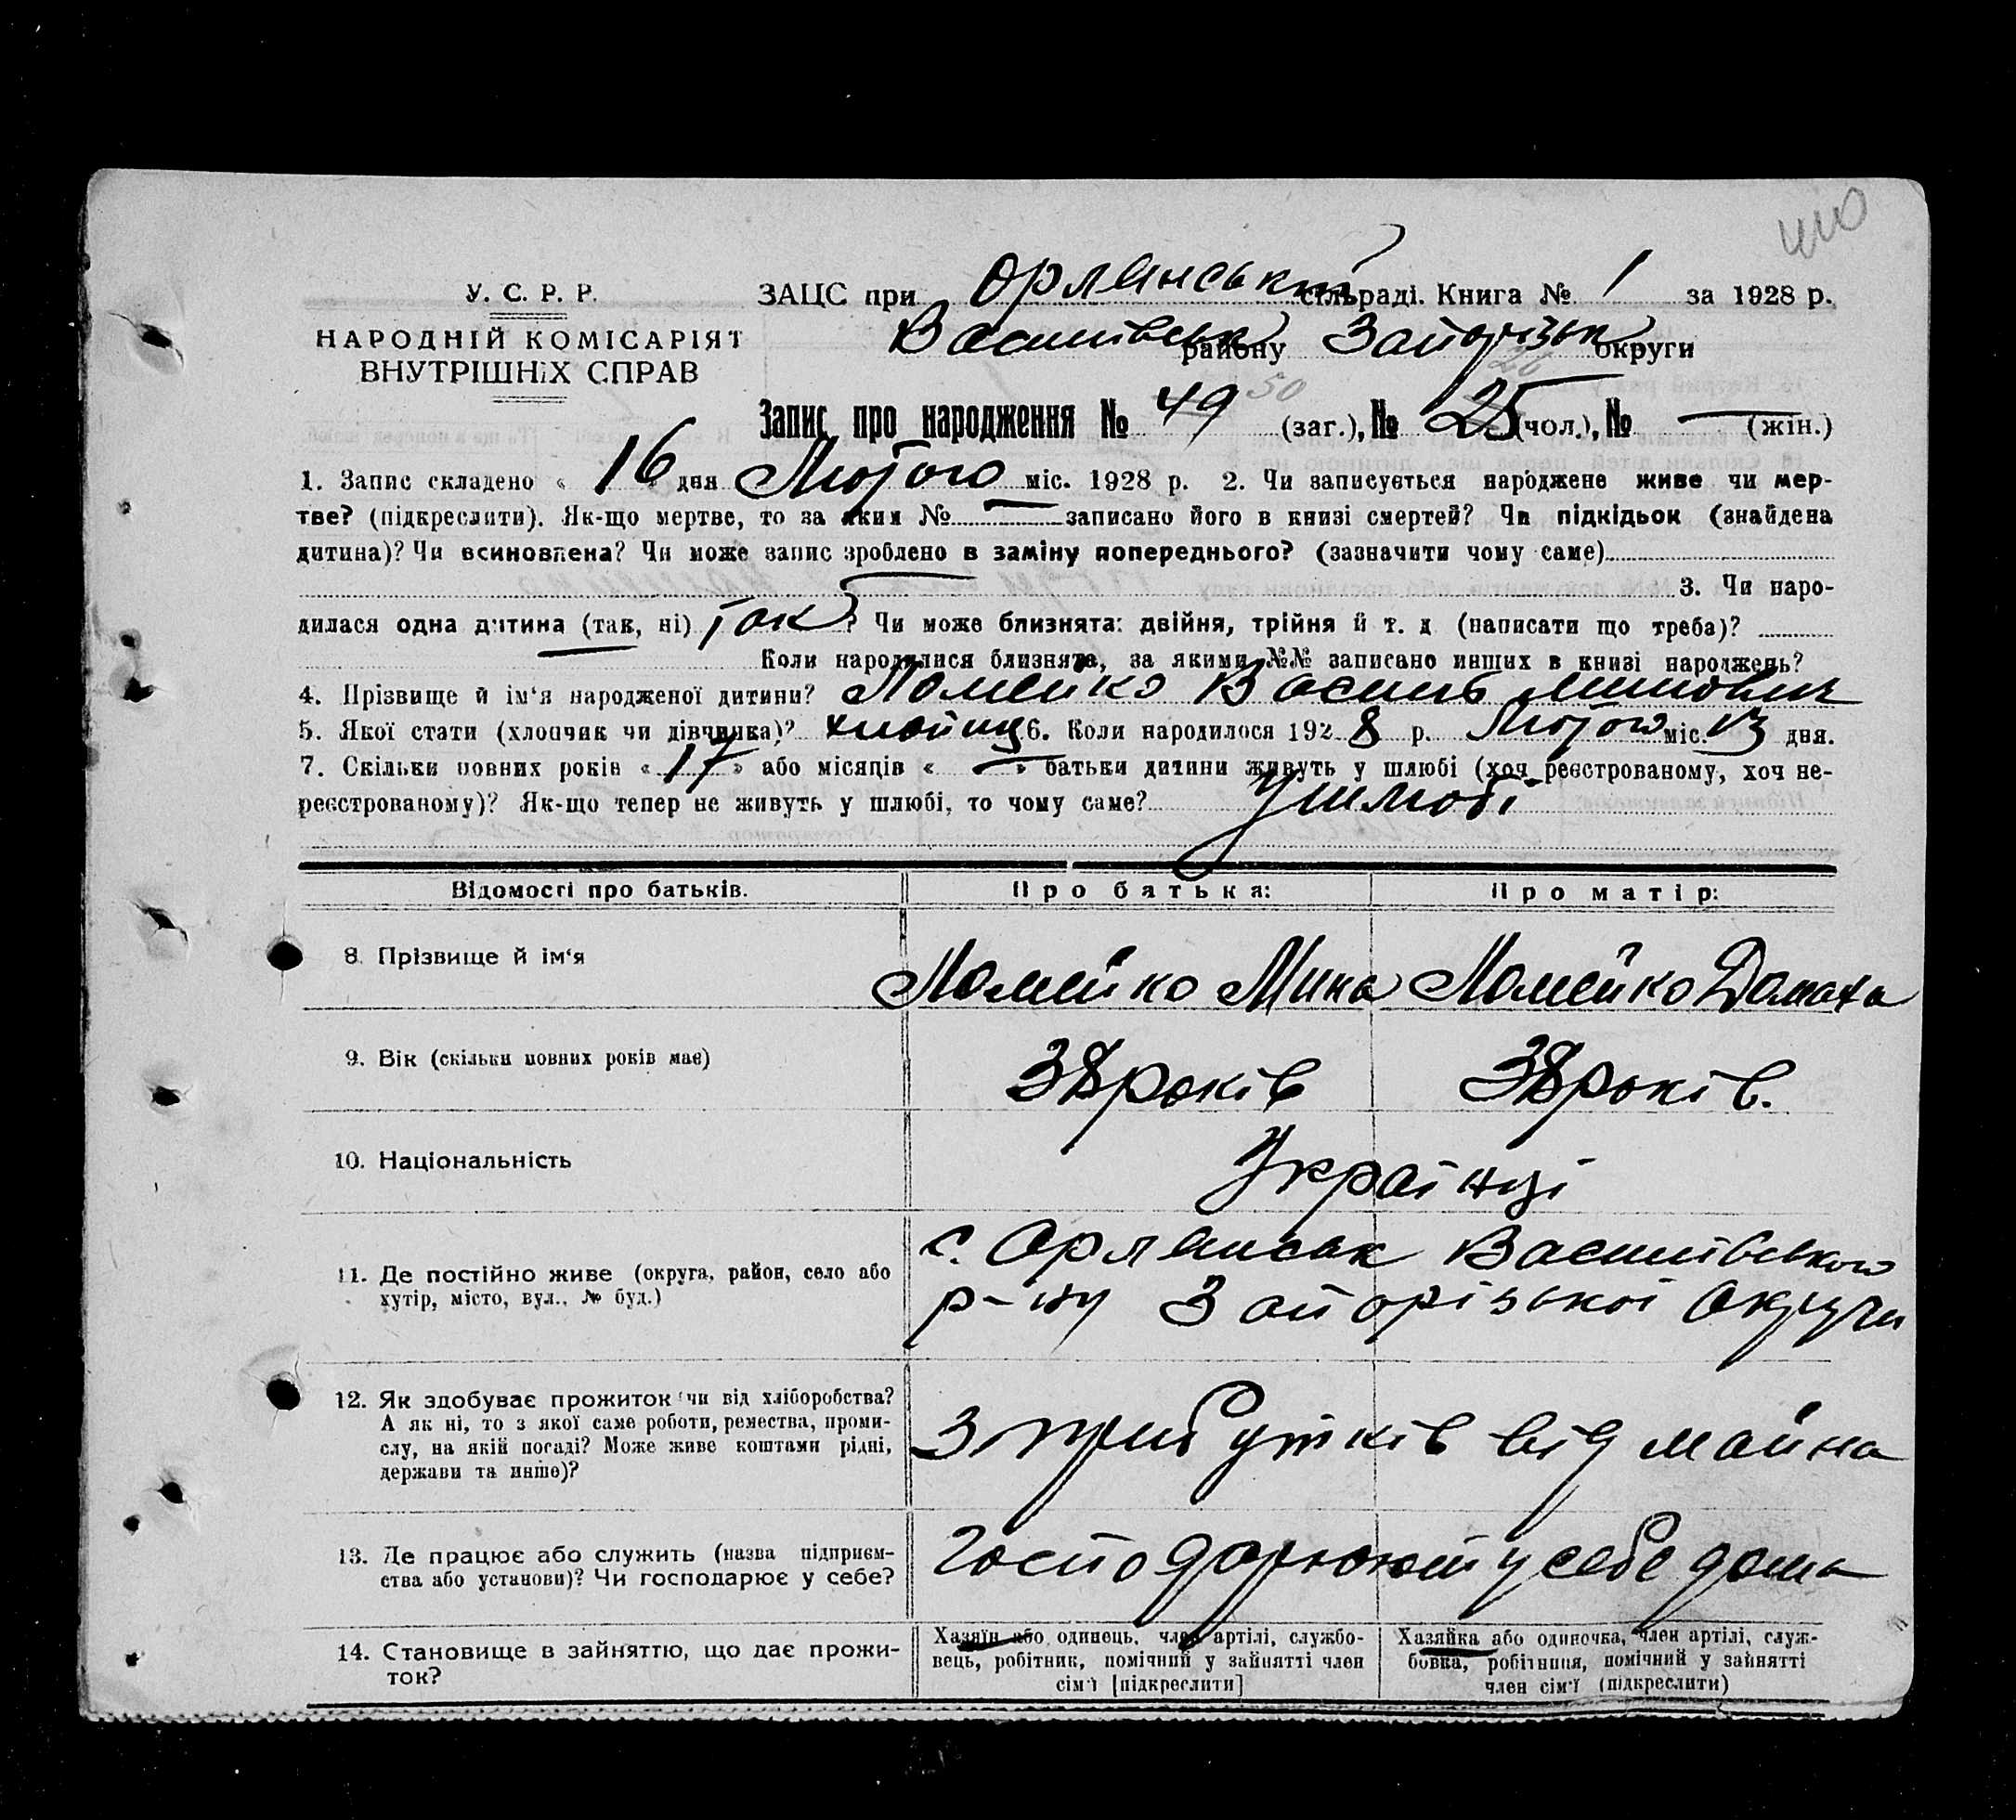 410
У. С. Р. Р.
НАРОДНІЙ КОМІСАРІЯТ
ВНУТРІШНІХ СПРАВ
ЗАЦС при Орлянський сільраді. Книга № 1 за 1928 р.
Василівськ району Запорізьк округи
Запис про народження № 49 50 (заг.), № 25 26 (чол.), № — (жін.)
1. Запис складено « 16 » дня Лютого міс. 1928 р. 2. Чи записується народжене живе чи мер-
тве? (підкреслити). Як-що мертве, то за яким № — записано його в книзі смертей? Чи підкідьок (знайдена
дитина)? Чи всиновлена? Чи може запис зроблено в заміну попереднього? (зазначити чому саме)
3. Чи наро-
дилася одна дитина (так, ні) Так ? Чи може близнята: двійня, трійня й т. д (написати що треба)?
Коли народилися близнята, за якими №№ записано инших в книзі народжень?
4. Прізвище й ім‘я народженої дитини? Ломейко Василь Минович
5. Якої стати (хлопчик чи дівчинка)? хлопиц 6. Коли народилося 1928 р. Лютого міс. 13 дня.
7. Скільки повних років « 17 » або місяців « — » батьки дитини живуть у шлюбі (хоч реєстрованому, хоч не-
реєстрованому)? Як-що тепер не живуть у шлюбі, то чому саме? У шлюбі
Відомості про батьків. Про батька: Про матір:
8. Прізвище й ім‘я Ломейко Мина Ломейко Домаха
9. Вік (скільки повних років має) 38 років 38 років.
10. Національність Українці
11. Де постійно живе (округа, район, село або
хутір, місто, вул., № буд.)
с. Орлянськ Василівського
р-ну Запорізької Округи
12. Як здобуває прожиток (чи від хліборобства?
А як ні, то з якої саме роботи, ремества, проми-
слу, на якій посаді? Може живе коштами рідні,
держави та инше)?
З прибутків від майна
13. Де працює або служить (назва підприєм-
ства або установи)? Чи господарює у себе?
Господорюють у себе дома
14. Становище в зайняттю, що дає прожи-
ток?
Хазяїн або одинець, член артілі, службо-
вець, робітник, помічний у зайнятті член
сім‘ї [підкреслити]
Хазяйка або одиночка, член артілі, служ-
бовка, робітниця, помічний у зайнятті
член сім‘ї (підкреслити)